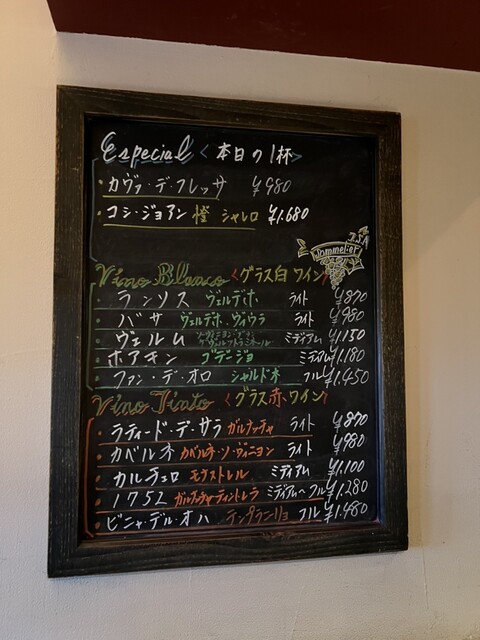 Especial <本日の1杯>
・カヴァ・デ・フレッサ ¥980
・コシ・ジョアン 橙 シャレロ ¥1.680
J.S.A
Sommelier
Vino Blanco <グラス白ワイン>
・ランソス ヴェルデホ ライト ¥870
・バサ ヴェルデホ・ヴィウラ ライト ¥980
・ヴェルム ミディアム ¥1.150
・ホアキン ゴデージョ ミディアム ¥1.180
・ファン・デ・オロ シャルドネ フル ¥1.450
Vino Tinto <グラス赤ワイン>
・ラティード・デ・サラ ガルナッチャ ライト ¥870
・カベルネ カベルネ・ソ・ヴィニヨン ライト ¥980
・カルチェロ モナストレル ミディアム ¥1,100
・1752 ガルナッチャティントレラ ミディアム〜フル ¥1,280
・ビニャ・デル・オハ テンプラニーリョ フル ¥1,480